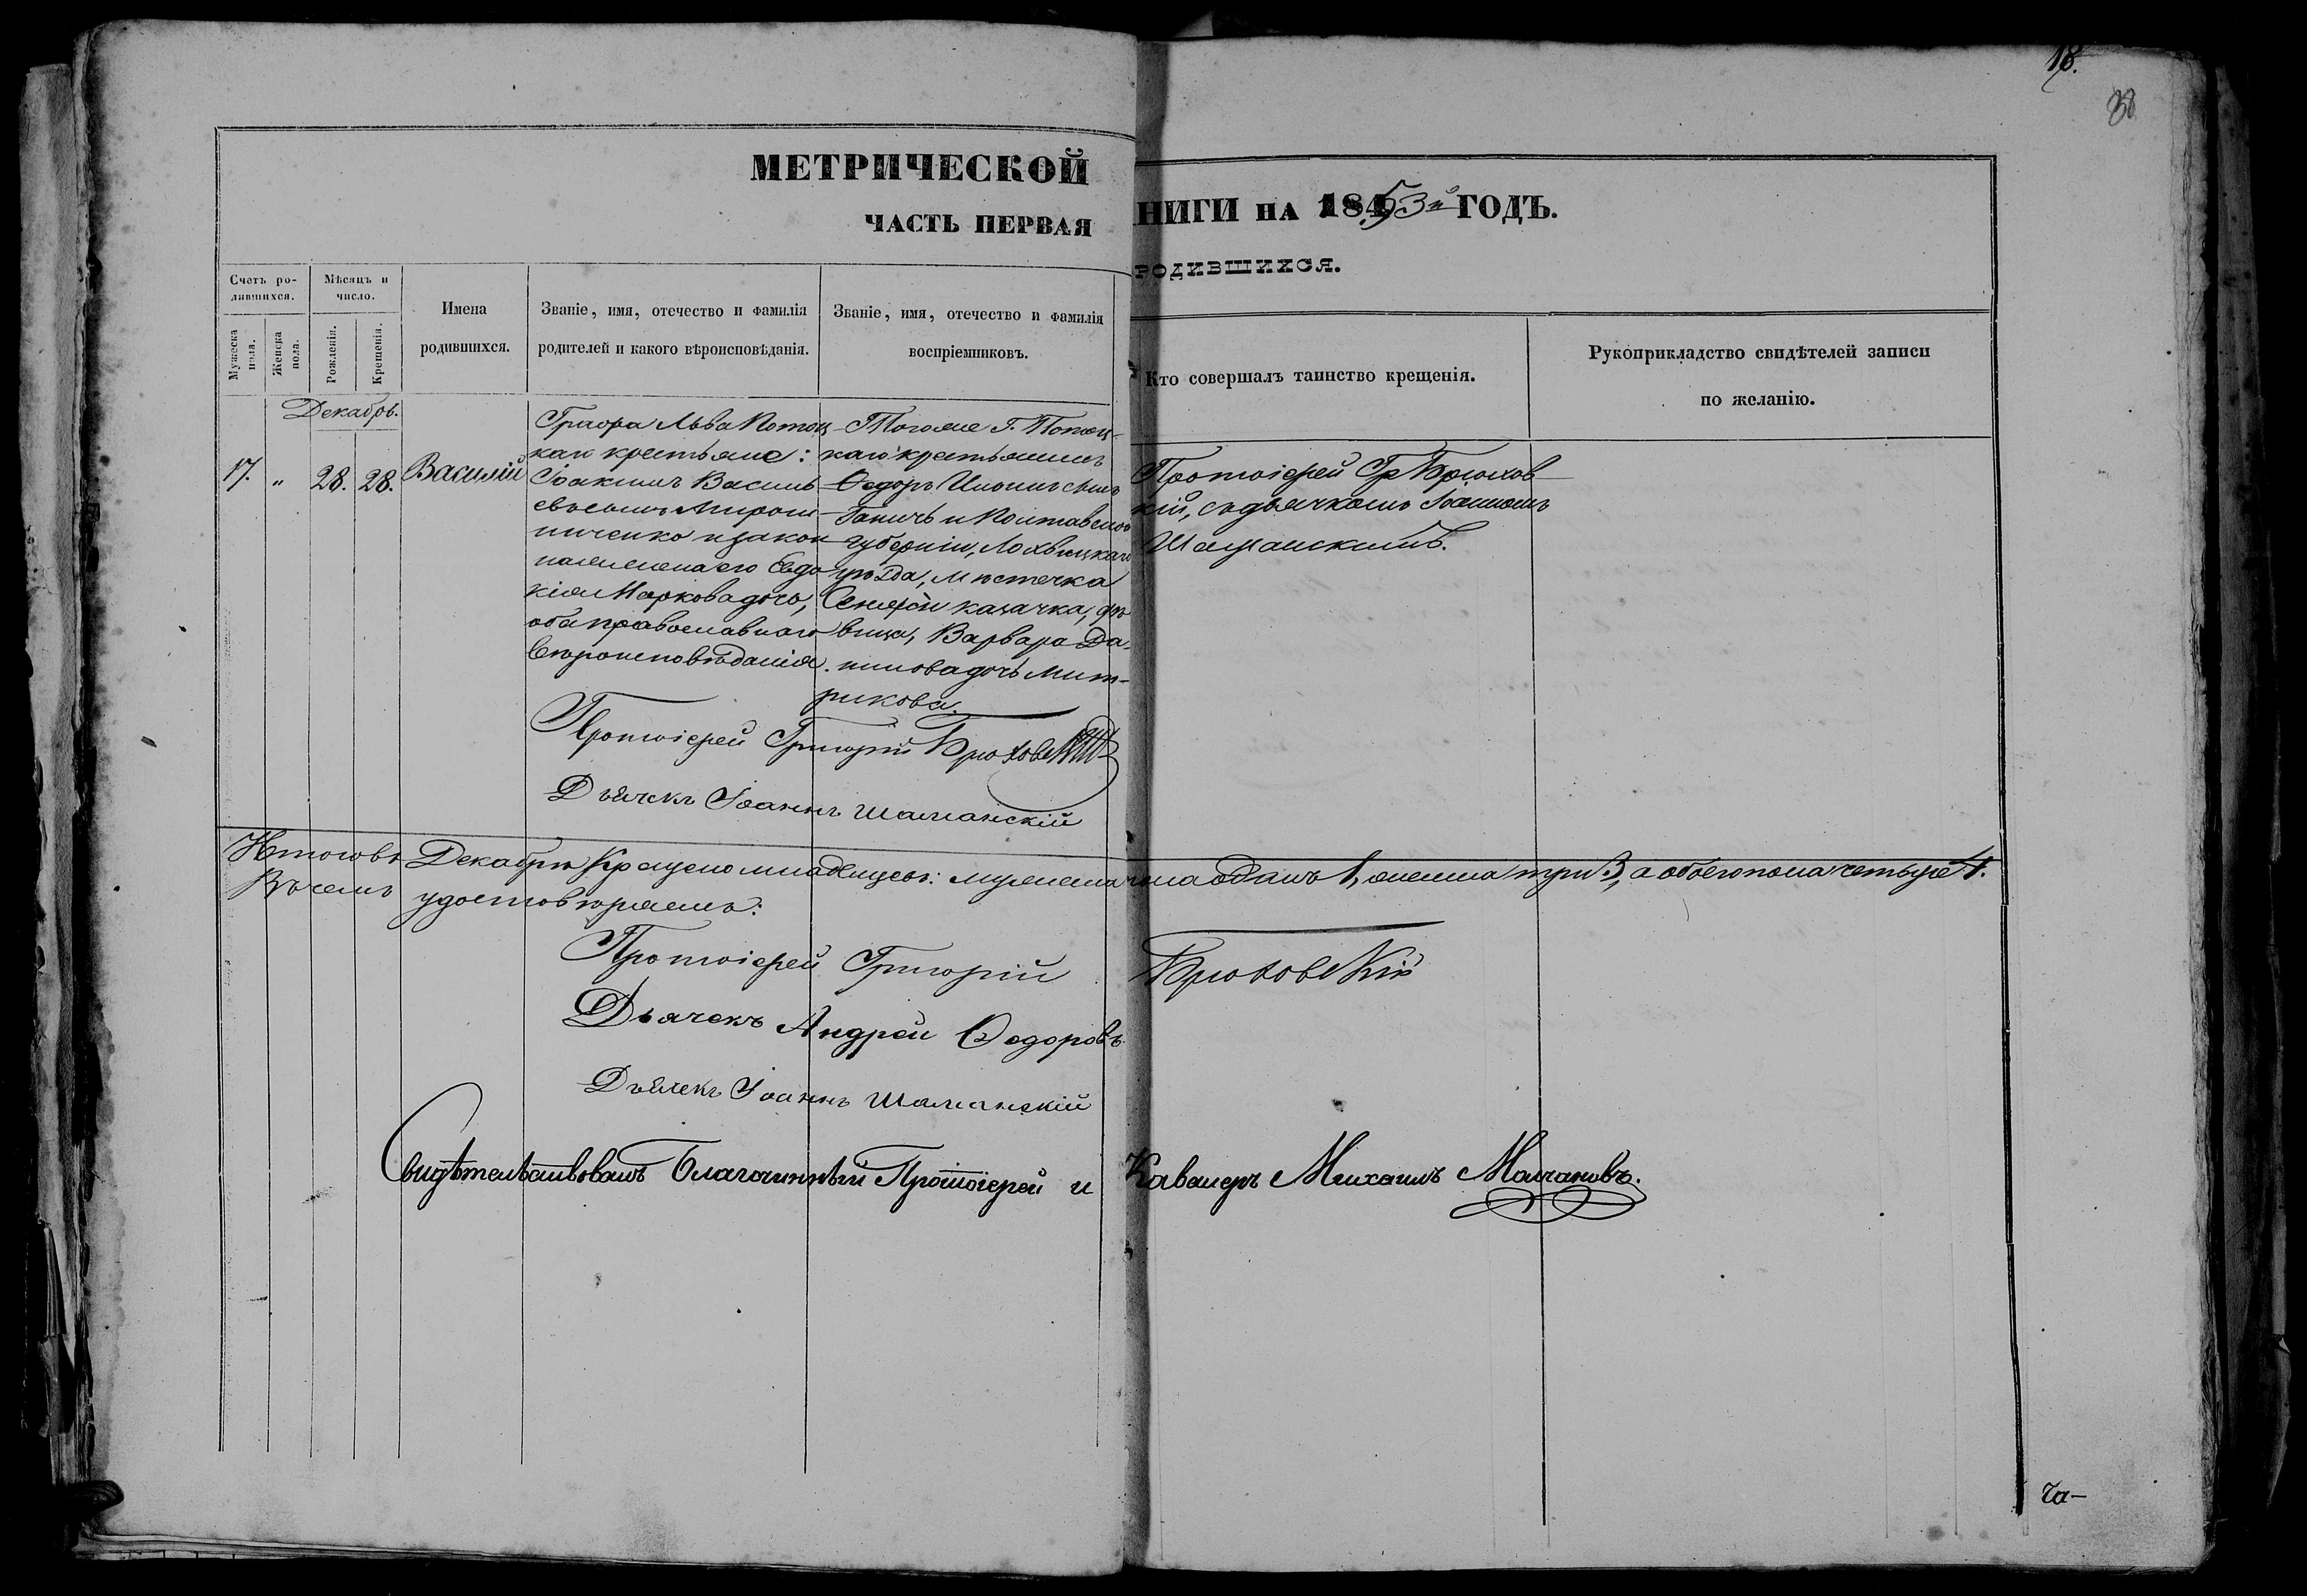 18.
38
МЕТРИЧЕСКОЙ
НИГИ НА 1853й ГОДЪ.
ЧАСТЬ ПЕРВАЯ
РОДИВШИХСЯ.
Счетъ ро-
дившихся.
Мужеска
пола.
Женска
пола.
Мѣсяцъ и
число.
Рожденія.
Крещенія.
Имена
родившихся.
Званіе, имя, отечество и фамилія
родителей и какого вѣроисповѣданія.
Званіе, имя, отечество и фамилія
воспріемниковъ.
Кто совершалъ таинство крещенія.
Рукоприкладство свидѣтелей записи
по желанію.
Декабрь.
17. „ 28. 28. Василій
Графа Льва Потоц-
каго крестьяне:
Іоакимъ Василь-
евъ сынъ Мирош-
ниченко и закон-
ная жена его Евдо-
кія Маркова дочь,
оба православнаго
вѣроисповѣданія.
Тогоже Г. Потоц-
каго крестьянинъ
Ѳедоръ сынъ
и Полтавской
губерніи, Лохвицкаго
уѣзда, мѣстечка
Сенчи казачка, дѣ-
вица, Варвара Да-
нилова дочь Мит-
рикова.
Протоіерей Гр Брюхов-
кій, съ дьячкомъ Іоанномъ
Шаманскимъ.
Протоіерей Григорій Брюховскій
Дьячекъ Іоаннъ Шаманскій
Итого въ Декабрѣ крещено младенцевъ: мужеска пола одинъ 1, женска три 3, а обоего пола четыре 4.
Въ чемъ удостовѣряемъ:
Протоіерей Григорій Брюховскій
Дьячекъ Андрей Ѳедоровъ
Дьячекъ Іоаннъ Шаманскій
Свидѣтельствовалъ Благочинный Протоіерей и Кавалеръ Михаилъ Молчановъ.
Ча-